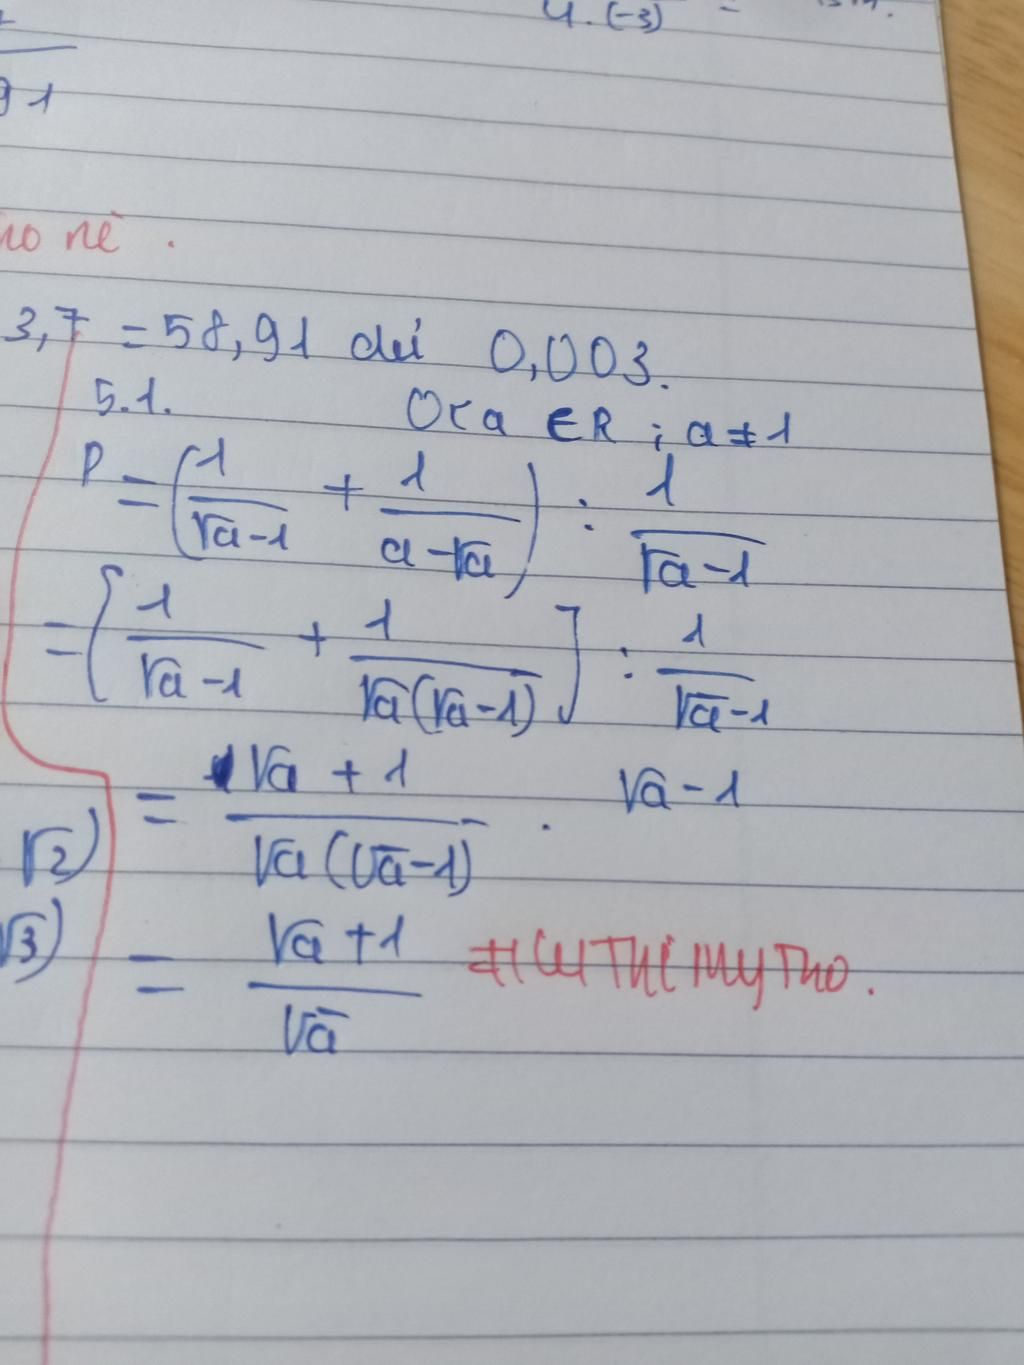 4.(-3) =
91
no nè .
3,7 = 58,91 dư 0,003.
5.1. 0<a ∈R ; a≠1
P = (1/(√a-1) + 1/(a-√a)) : 1/(√a-1)
= [1/(√a-1) + 1/(√a(√a-1))] : 1/(√a-1)
= (√a+1)/(√a(√a-1)) . √a-1
√2)
√3) = (√a+1)/√a